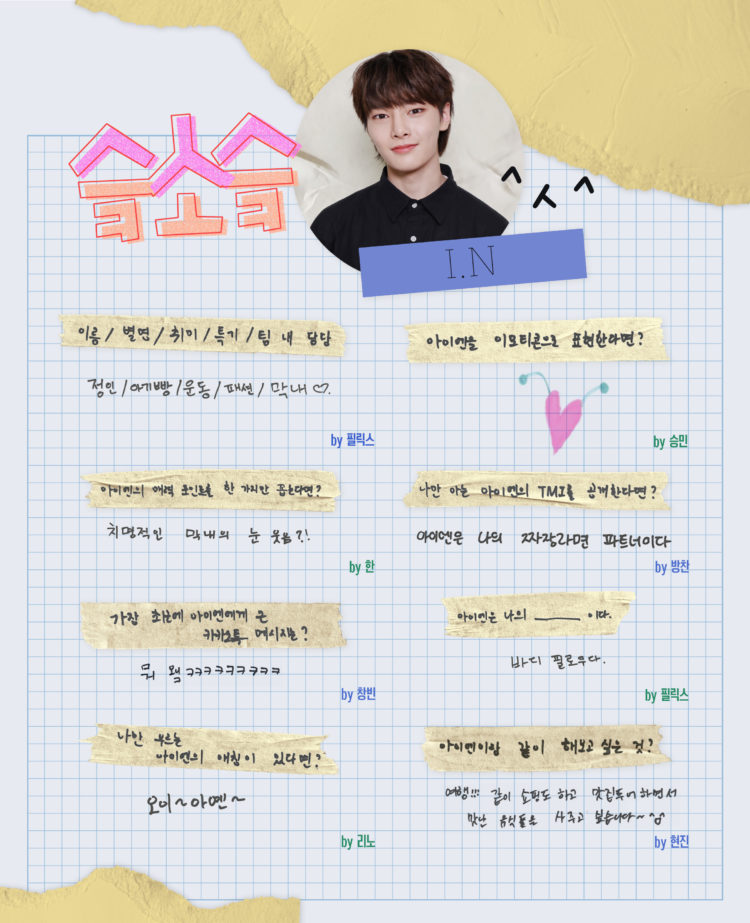 슼스슼
^ㅅ^
I.N
이름 / 별명 / 취미 / 특기 / 팀 내 담당
정인 / 아기빵 / 운동 / 패션 / 막내♡.
by 필릭스
아이엔을 이모티콘으로 표현한다면?
by 승민
아이엔의 매력 포인트를 한 가지만 꼽는다면?
치명적인 막내의 눈 웃음?!
by 한
나만 아는 아이엔의 TMI를 공개한다면?
아이엔은 나의 짜장라면 파트너이다
by 방찬
가장 최근에 아이엔에게 온
카카오톡 메시지는?
뭐 왜 ㅋㅋㅋㅋㅋㅋㅋㅋㅋ
by 창빈
아이엔은 나의 ______ 이다.
바디 필로우다.
by 필릭스
나만 부르는
아이엔의 애칭이 있다면?
오이~아옌~
by 리노
아이엔이랑 같이 해보고 싶은 것?
여행!!! 같이 쇼핑도 하고 맛집투어 하면서
맛난 음식들은 사주고 싶습니다~
by 현진